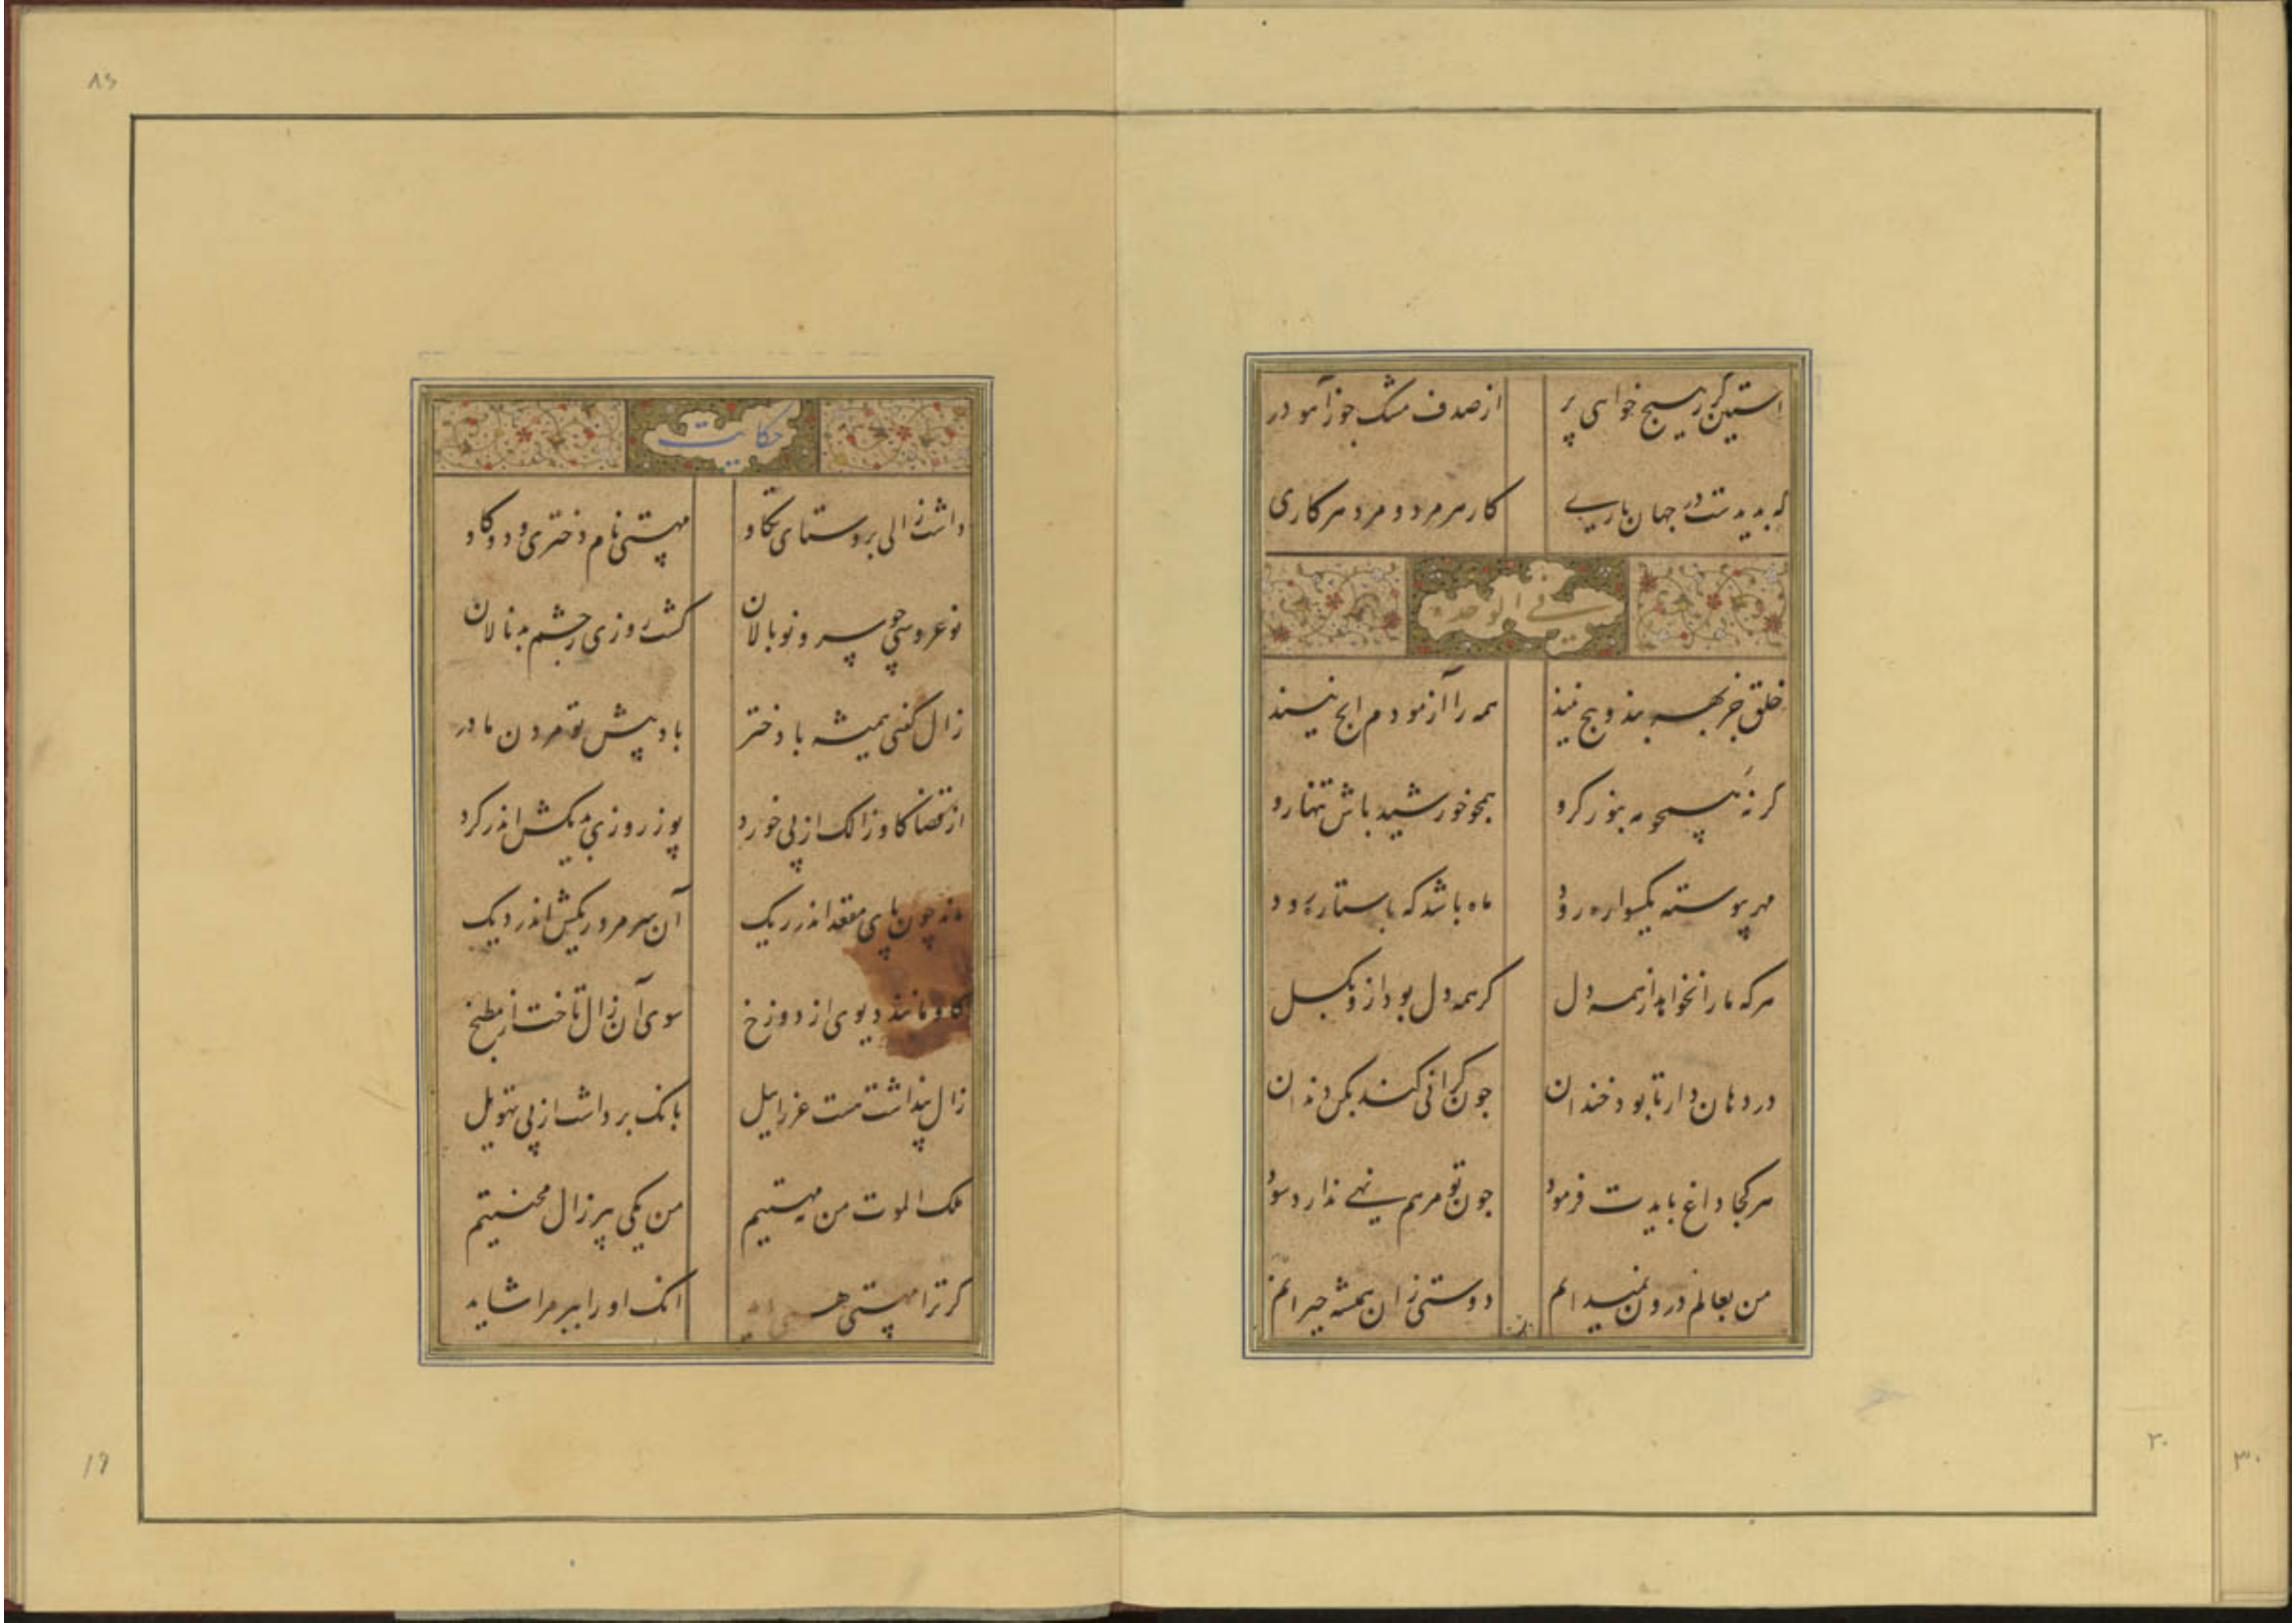 استین گر ز هیچ خواهی پر از صدف مشک جوز آهو در
که بدیدست در جهان باری کار هر مرد و مرد هر کاری
فی الوحدة
خلق جز بهر بند و پیچ نیند همه را آزمودم ایچ نیند
گر نهٔ همچو مه بنور گرو همچو خورشید باش تنها رو
مهر پیوسته یکسواره رود ماه باشد که با ستاره رود
هرکه ما را نخواهد از همه دل گر همه دل بود ازو بگسل
در دهان دار تا بود خندان چون گرانی کند بکن دندان
هر کجا داغ بایدت فرمود چون تو مرهم نهی ندارد سود
من بعالم درون نمیدانم دوستی زان همیشه حیرانم
۸۶
حکایت
داشت زالی بروستای تکاو مهستی نام دختری و دو گاو
نو عروسی چو سرو نو بالان گشت روزی ز چشم بد نالان
زال گفتی همیشه با دختر باد پیش تو مردن مادر
از قضا گاو زالک از پی خورد پوز روزی بدیگش اندر کرد
ماند چون پای مقعد اندر ریگ آن سر مرد ریگش اندر دیگ
گاو مانند دیوی از دوزخ سوی آن زال تاخت از مطبخ
زال پنداشت هست عزراییل بانگ برداشت از پی تهویل
ملک الموت من نه مهستیم من یکی پیر زال محنتیم
گر ترا مهستی همی باید آنک او را ببر مرا شاید
۱۹
۲۰
۳۰